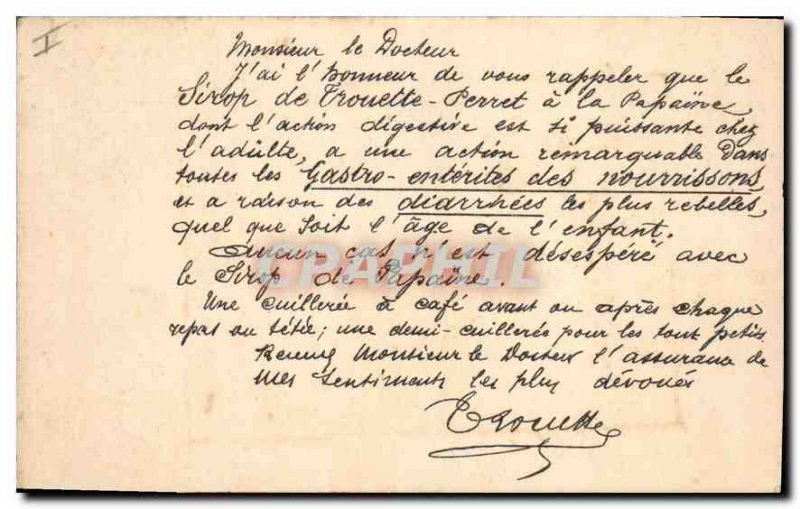 I
Monsieur le Docteur
J'ai l'honneur de vous rappeler que le
Sirop de Trouette-Perret à la Papaïne
dont l'action digestive est si puissante chez
l'adulte, a une action remarquable dans
toutes les Gastro-entérites des nourrissons
et a raison des diarrhées les plus rebelles,
quel que soit l'âge de l'enfant.
Aucun cas n'est désespéré avec
le Sirop de Papaïne.
Une cuillerée à café avant ou après chaque
repas ou tétée; une demi-cuillerée pour les tout petits.
Recevez Monsieur le Docteur l'assurance de
mes sentiments les plus dévoués
Trouette
CPAPHIL